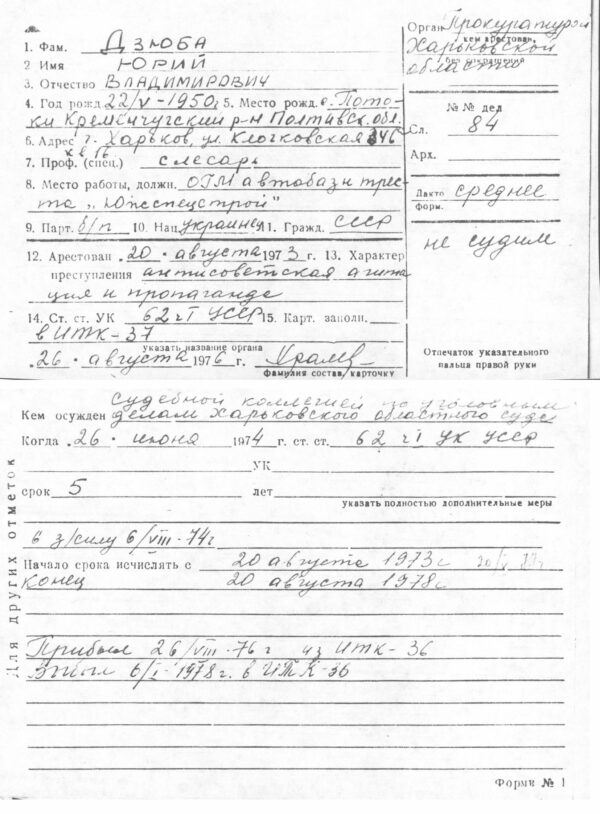 1. Фам. ДЗЮБА
2 Имя ЮРИЙ
3. Отчество ВЛАДИМИРОВИЧ
4. Год рожд. 22/V-1950г. 5. Место рожд. с. Пото-
ки Кременчугский р-н Полтавск. обл.
6. Адрес г. Харьков, ул. Клочковская
7. Проф. (спец.) слесарь
8. Место работы, должн. ОГМ автобазы трес-
та „Южспецстрой"
9. Парт. б/п 10. Нац. украинец 11. Гражд. СССР
12. Арестован „20" августа 1973 г. 13. Характер
преступления антисоветская агита
ция и пропаганда
14. Ст. ст. УК 62 ч I УССР 15. Карт. заполн.
в ИТК-37
указать название органа
„26" августа 1976 г.
фамилия состав. карточку
Орган Прокуратурой
кем арестован,
Харьковской
без сокращения
области
№ № дел
Сл. 84
Арх.
Дакто форм. среднее
не судим
Отпечаток указательного
пальца правой руки
Судебной коллегией по уголовным
Кем осужден делам Харьковского областного суда
Когда „26" июня 1974 г. ст. ст. 62 ч I УК УССР
УК
срок 5 лет
указать полностью дополнительные меры
в з/силу 6/VIII-74г
Начало срока исчислять с 20 августа 1973г
Конец 20 августа 1978г.
Прибыл 26/VIII-76 г из ИТК-36
Выбыл 6/I-1978г. в ИТК-36
Для других отметок
Форма № 1